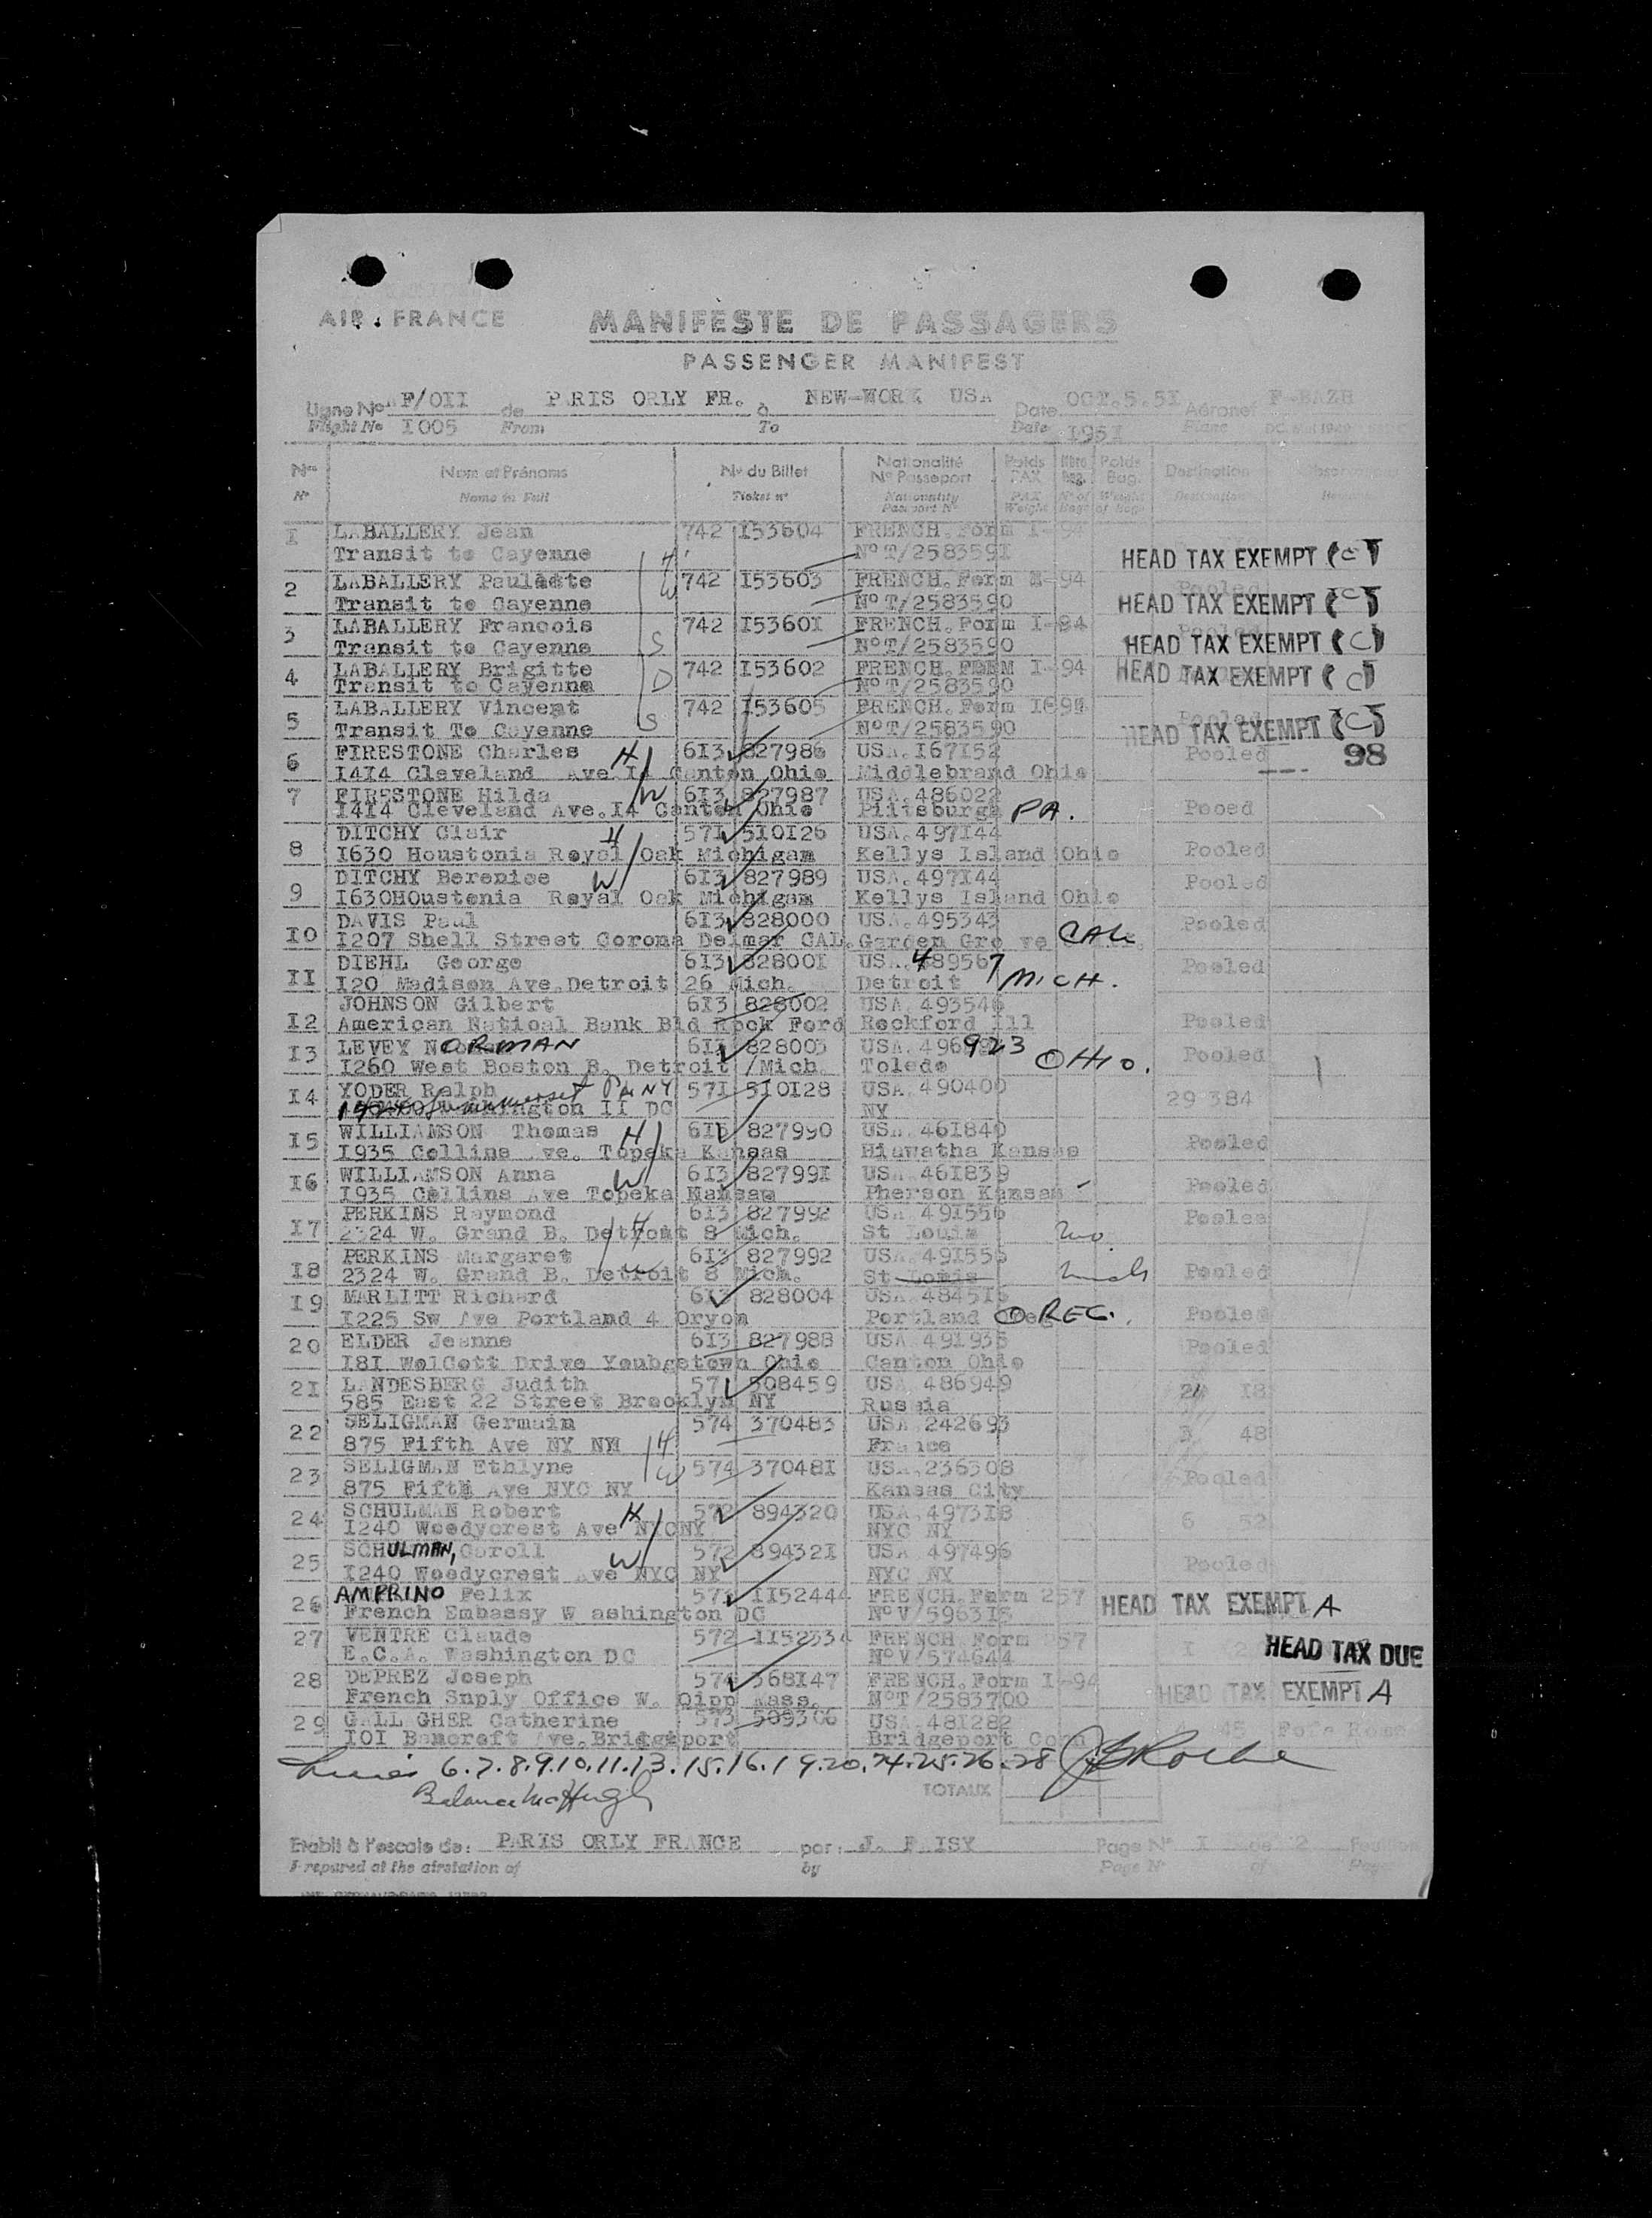 AIR FRANCE
MANIFESTE DE PASSAGERS
PASSENGER MANIFEST
Ligne No AF/OII de PARIS ORLY FR. à NEW-WORK USA Date OCT.5.5I Aéronef F-BAZR
Flight No I005 From To Date I95I Plane
Nos Nom et Prénoms No du Billet Nationalité No Passeport Poids PAX Nbre Bag. Poids Bag. Destination
No Name in Full Ticket no Nationality Passport No PAX Weight No of Bags Weight of Bags Destination
I LABALLERY Jean 742 I53604 FRENCH.Form I-94
Transit to Cayenne H No T/258359I HEAD TAX EXEMPT (C)
2 LABALLERY Paulette W 742 I53603 FRENCH.Form I-94 Pooled
Transit to Cayenne No T/2583590 HEAD TAX EXEMPT (C)
3 LABALLERY Francois 742 I5360I FRENCH.Form I-94 Pooled
Transit to Cayenne S No T/2583590 HEAD TAX EXEMPT (C)
4 LABALLERY Brigitte 742 I53602 FRENCH.FORM I-94 HEAD TAX EXEMPT (C)
Transit to Cayenne D No T/2583590
5 LABALLERY Vincent 742 I53605 FRENCH.Form I-94
Transit To Cayenne S No T/2583590 HEAD TAX EXEMPT (C)
6 FIRESTONE Charles H 6I3 827986 USA.I67I52 Pooled 98
I4I4 Cleveland Ave.I4 Canton Ohio Middlebrand Ohio
7 FIRESTONE Hilda W 6I3 827987 USA.486022
I4I4 Cleveland Ave.I4 Canton Ohio Pittsburgh PA. Pooed
8 DITCHY Clair H 57I 5I0I26 USA.497I44
I630 Houstonia Royal Oak Michigam Kellys Island Ohio Pooled
9 DITCHY Berenice W 6I3 827989 USA.497I44 Pooled
I630HOustonia Royal Oak Michigam Kellys Island Ohio
IO DAVIS Paul 6I3 828000 USA.495343 Pooled
I207 Shell Street Corona Delmar CAL. Garden Gro ve CAL.
II DIEHL George 6I3 82800I USA.489567 Pooled
I20 Madison Ave.Detroit 26 Mich. Detroit MICH.
I2 JOHNSON Gilbert 6I3 828002 USA.493546
American Natioal Bank Bld Rock Ford Rockford Ill Pooled
I3 LEVEY NORMAN 6I3 828003 USA.496923 OHIO. Pooled
I260 West Boston B. Detroit /Mich. Toledo
I4 YODER Ralph 57I 5I0I28 USA.490400 29 384
II DC NY
I5 WILLIAMSON Thomas H 6I3 827990 USA.46I840 Pooled
I935 Collins Ave. Topeka Kansas Hiawatha Kansas
I6 WILLIAMSON Anna W 6I3 82799I USA.46I839 Pooled
I935 Collins Ave Topeka Kansas Pherson Kansas
I7 PERKINS Raymond 6I3 827992 USA.49I556 Pooled
2324 W. Grand B. Detroit 8 Mich. H St Louis Mo.
I8 PERKINS Margaret 6I3 827992 USA.49I556
2324 W. Grand B. Detroit 8 Mich. W St Louis Mich Pooled
I9 MARLITT Richard 6I3 828004 USA.4845I6
I225 Sw Ave Portland 4 Oryon Portland OREG. Pooled
20 ELDER Jeanne 6I3 827988 USA 49I935 Pooled
I8I WolCott Drive Youbgstown Ohio Canton Ohio
2I LANDESBERG Judith 57I 508459 USA 486949 I8
585 East 22 Street Brooklyn NY Russia
22 SELIGMAN Germain 574 370483 USA 242693
875 Fifth Ave NY NY H France 3 48
23 SELIGMAN Ethlyne W 574 37048I USA.236308 Pooled
875 Fifth Ave NYC NY Kansas City
24 SCHULMAN Robert H 572 894320 USA.4973I8 6 52
I240 Woodycrest Ave NYCNY NYC NY
25 SCHULMAN, Caroll W 572 89432I USA 497496 Pooled
I240 Woodycrest Ave NYC NY NYC NY
26 AMPRINO Felix 57I II52444 FRENCH.Form 257 HEAD TAX EXEMPT A
French Embassy W ashington DC No V/5963I8
27 VENTRE Claude 572 II52334 FRENCH Form 257 HEAD TAX DUE
E.C.A. Washington DC No V/574644
28 DEPREZ Joseph 574 368I47 FRENCH.Form I-94 HEAD TAX EXEMPT A
French Snply Office W. Qipp Mass. No T/2583700
29 GALLAGHER Catherine 573 509306 USA 48I282
I0I Bancroft Ave.Bridgeport Bridgeport Conn
6.7.8.9.10.11.13.15.16.19.20.24.25.26.28
Balance McHugh
TOTAUX
Etabli à l'escale de: PARIS ORLY FRANCE par: J. FAISY Page No I de 2 Feuilles
Prepared at the airstation of by Page No of Pages